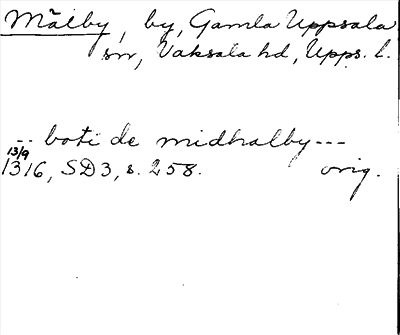 Mälby, by, Gamla Uppsala
sn, Vaksala hd, Upps. l.
-- boti de midhalby ---
13/9
1316, SD3, s. 258. orig.